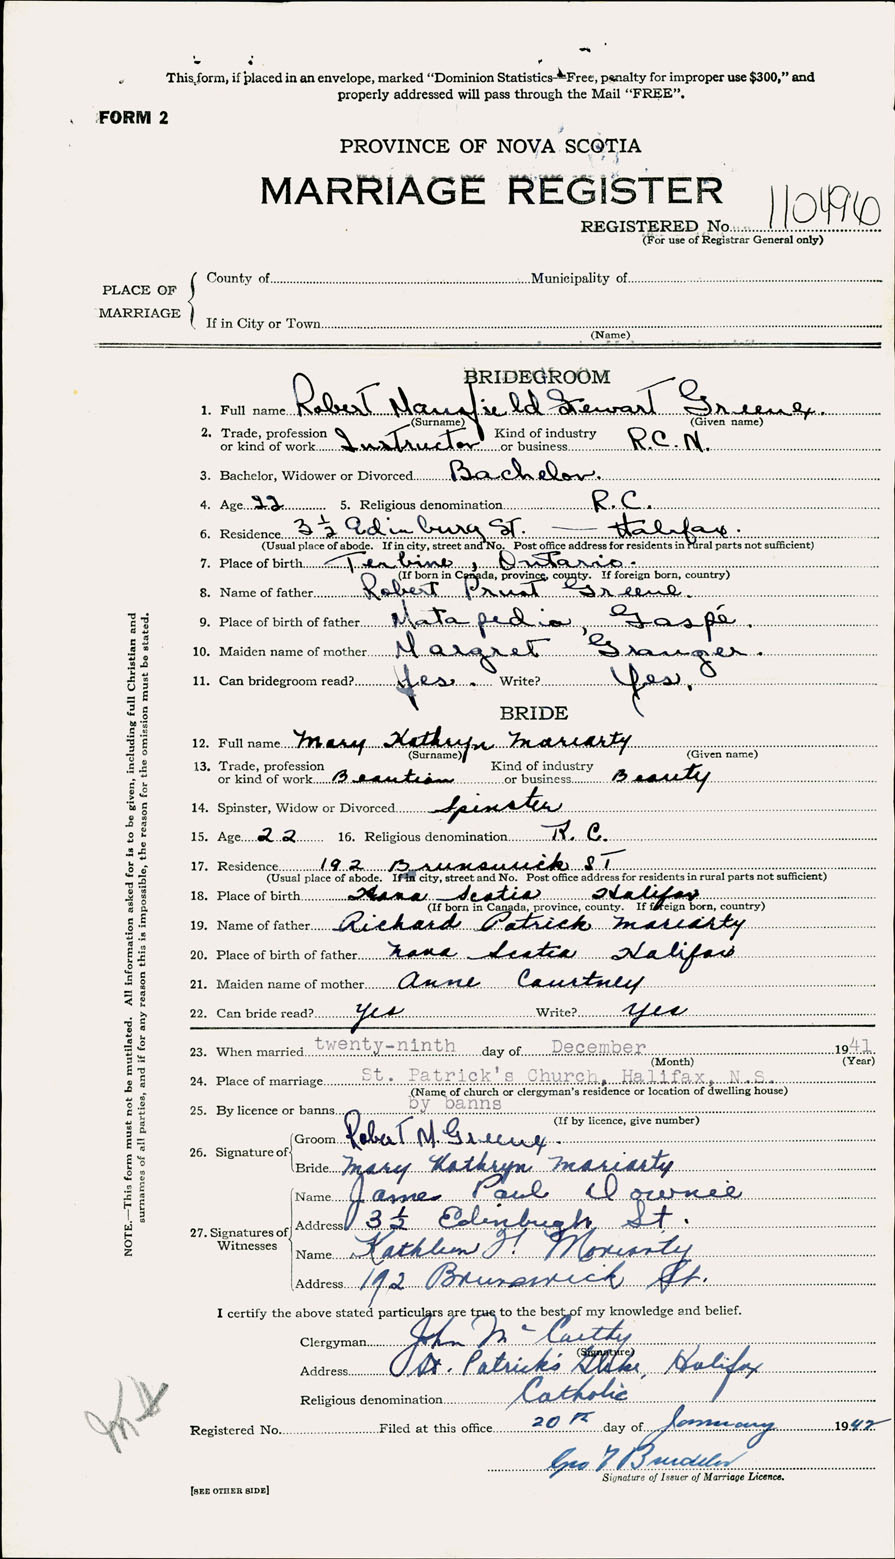 This form, if placed in an envelope, marked “Dominion Statistics—Free, penalty for improper use $300,” and
properly addressed will pass through the Mail “FREE”.
FORM 2
PROVINCE OF NOVA SCOTIA
MARRIAGE REGISTER
110496
REGISTERED No.
(For use of Registrar General only)
PLACE OF MARRIAGE
County of Municipality of
If in City or Town
(Name)
BRIDEGROOM
1. Full name Robert Mansfield Stewart Greene.
(Surname) (Given name)
2. Trade, profession or kind of work Instructor Kind of industry or business R.C.N.
3. Bachelor, Widower or Divorced Bachelor.
4. Age 22 5. Religious denomination R.C.
6. Residence 3½ Edinburg St. — Halifax.
(Usual place of abode. If in city, street and No. Post office address for residents in rural parts not sufficient)
7. Place of birth Ontario.
(If born in Canada, province, county. If foreign born, country)
8. Name of father Robert Greene.
9. Place of birth of father Matapedia, Gaspé.
10. Maiden name of mother Margret Granger.
11. Can bridegroom read? Yes. Write? Yes.
BRIDE
12. Full name Mary Kathryn Moriarty
(Surname) (Given name)
13. Trade, profession or kind of work Beautian Kind of industry or business Beauty
14. Spinster, Widow or Divorced Spinster
15. Age 22 16. Religious denomination R.C.
17. Residence 192 Brunswick ST
(Usual place of abode. If in city, street and No. Post office address for residents in rural parts not sufficient)
18. Place of birth Nova Scotia Halifax
(If born in Canada, province, county. If foreign born, country)
19. Name of father Richard Patrick Moriarty
20. Place of birth of father Nova Scotia Halifax
21. Maiden name of mother Anne Courtney
22. Can bride read? Yes Write? Yes
23. When married twenty-ninth day of December 1941
(Month) (Year)
24. Place of marriage St. Patrick's Church, Halifax, N.S.
(Name of church or clergyman's residence or location of dwelling house)
25. By licence or banns by banns
(If by licence, give number)
26. Signature of
Groom Robert M. Greene.
Bride Mary Kathryn Moriarty
27. Signatures of Witnesses
Name James Paul Downie
Address 3½ Edinbugh St.
Name Kathleen F. Moriarty
Address 192 Brunswick St.
I certify the above stated particulars are true to the best of my knowledge and belief.
Clergyman John McCarthy
(Signature)
Address St. Patrick's Glebe, Halifax
Religious denomination Catholic
Registered No. Filed at this office 20th day of January 1942
Geo
Signature of Issuer of Marriage Licence.
[SEE OTHER SIDE]
NOTE.—This form must not be mutilated. All information asked for is to be given, including full Christian and
surnames of all parties, and if for any reason this is impossible, the reason for the omission must be stated.